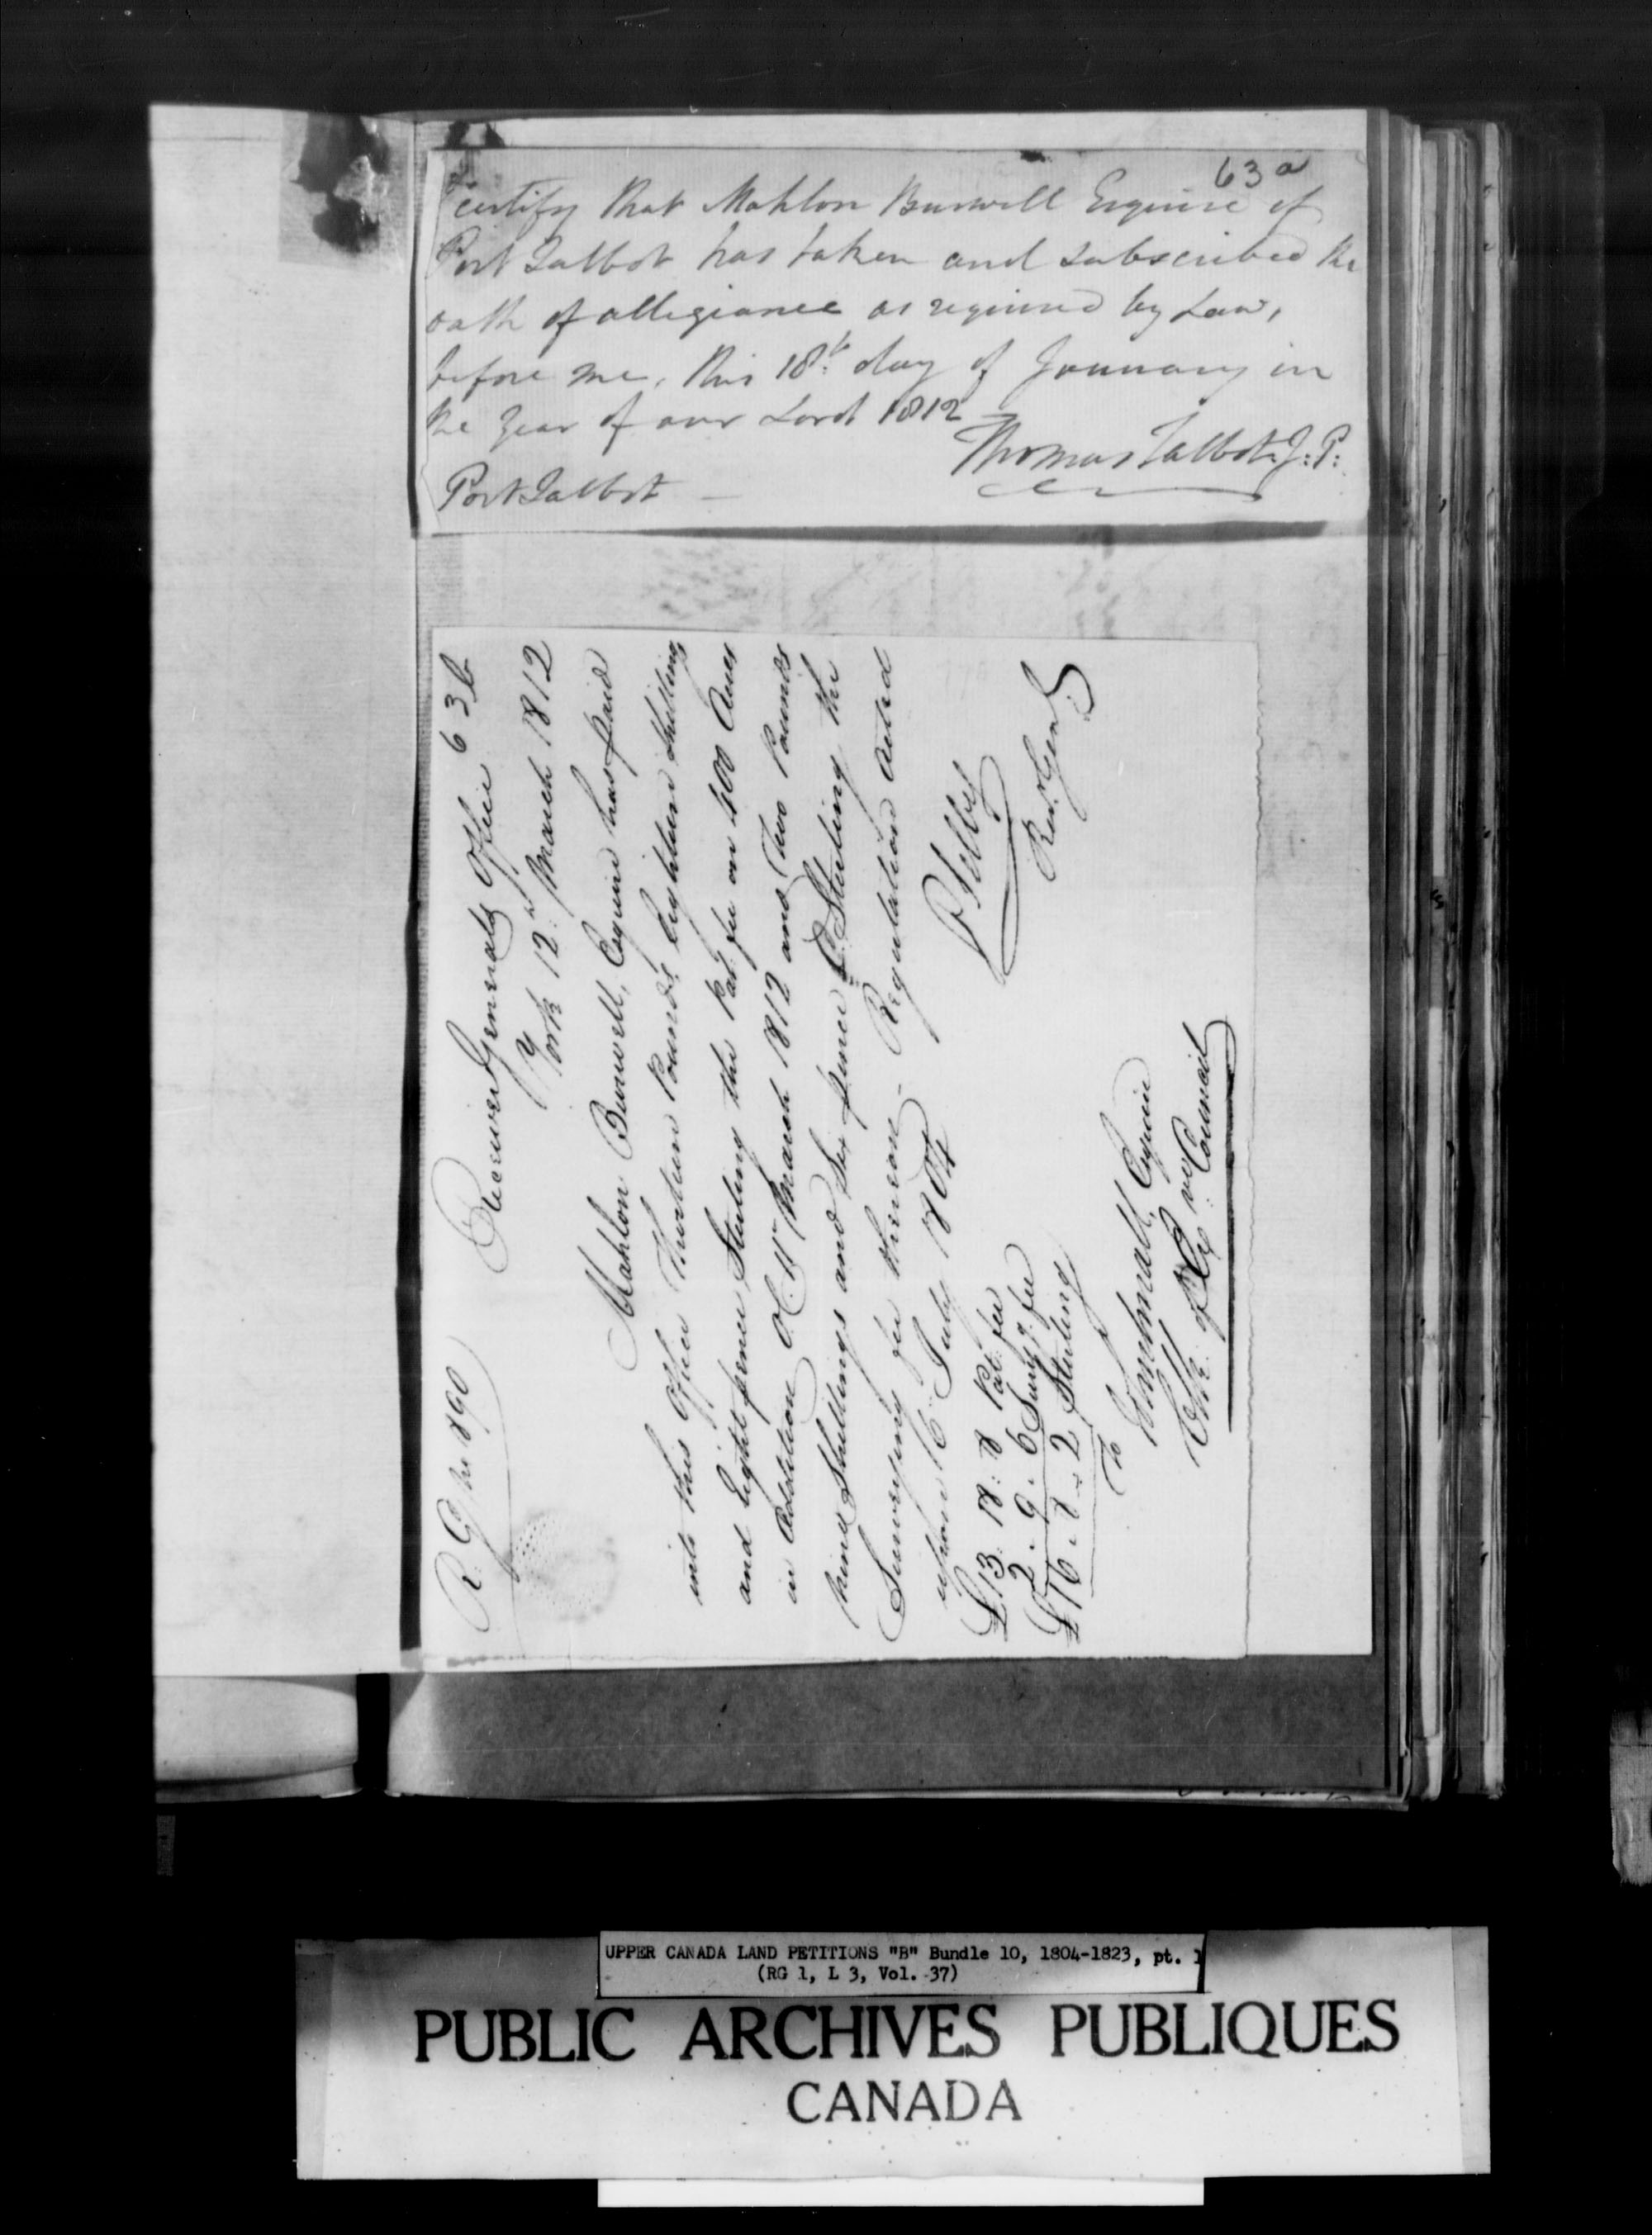 63 a
certify that Mahlon Burwell Esquire of
Port Talbot has taken and subscribed the
oath of allegiance as required by Law,
before me, this 18th day of January in
the Year of our Lord 1812
Thomas Talbot J: P:
Port Talbot —
63 b
R. G. No 890
Receiver Generals Office
York 12th March 1812
Mahlon Burwell, Esquire has paid
into this Office Thirteen Pounds, Eighteen Shillings
and Eight pence Sterling the Pat. fee on 400 Acres
in Addition O.C. 11th March 1812 and Two Pounds
nine Shillings and Six pence Sterling the
Surveying fee thereon - Regulation dated
6 July 1804
£13. 18: 8 Pat. fee
2. 9. 6 Survg. fee
£16. 8. 2 Sterling
P Selby
Recr. Genl.
To
John Small, Esquire
Clk. of Exve. Council
UPPER CANADA LAND PETITIONS "B" Bundle 10, 1804-1823, pt. 1
(RG 1, L 3, Vol. 37)
PUBLIC ARCHIVES PUBLIQUES
CANADA